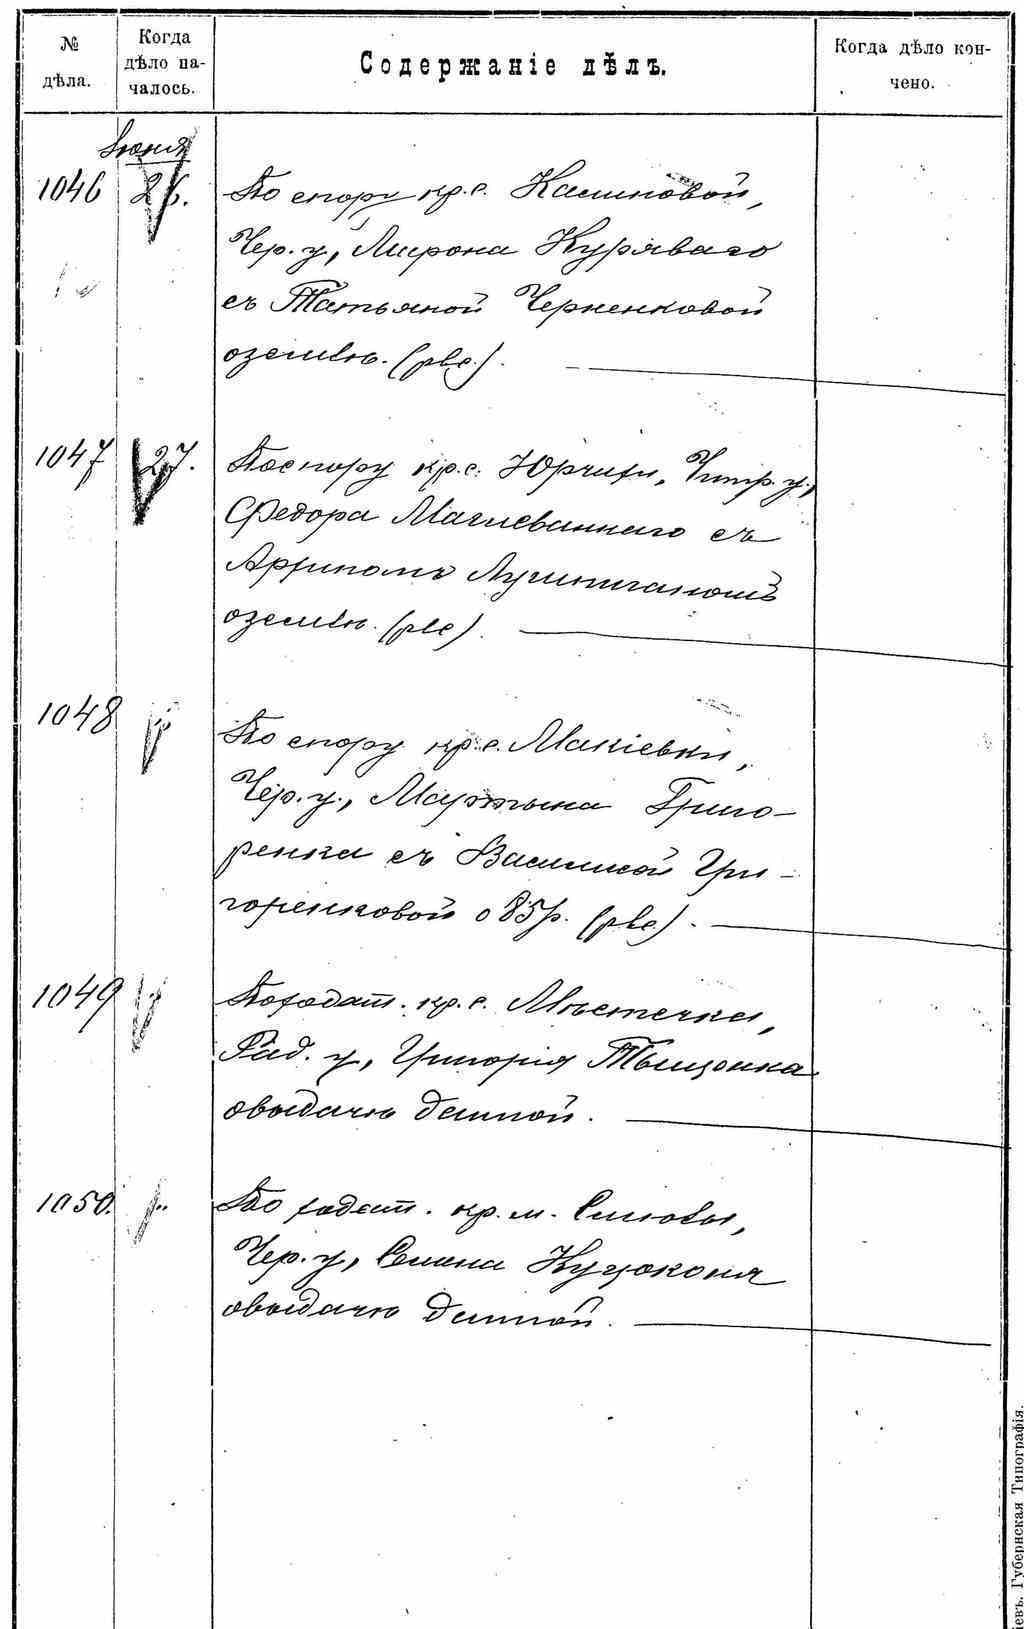 № дѣла.
Когда дѣло на-
чалось.
Содержаніе дѣлъ.
Когда дѣло кон-
чено.
Іюня
1046 26. По спору кр. с. Калиновой,
Чер. у., Мирона Куряваго
съ Татьяной Черненковой
о землѣ. (рвс.).
1047 27. По спору кр. с. Юрчихи, Чигир. у.,
Федора Маглеваннаго съ
о землѣ. (рвс).
1048 По спору кр. с. Макіевки,
Чер. у., Мартына Григо-
ренка съ Василисой Гри-
горенковой о 85 р. (рвс.).
1049 По ходат. кр. с. Мѣстечка,
Рад. у., Григорія Тыщенка
о выдачѣ данной.
1050. По ходат. кр. м. Смѣлы,
Чер. у., Семена Куцоконя
о выдачѣ данной.
іевъ. Губернская Типографія.